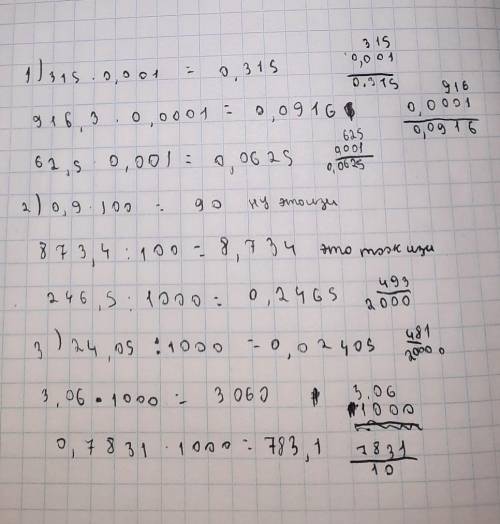 1) 315 · 0,001 = 0,315
315
0,001
0.315
916,3 · 0,0001 = 0,0916
916
0,0001
0,0916
62,5 · 0,001 = 0,0625
625
0001
0,0625
2) 0,9 · 100 = 90 ну это изи
873,4 : 100 = 8,734 это тож изи
246,5 : 1000 = 0,2465
493
2000
3) 24,05 : 1000 = 0,02405
481
20000
3,06 · 1000 = 3060
3,06
1000
0,7831 · 1000 = 783,1
7831
10